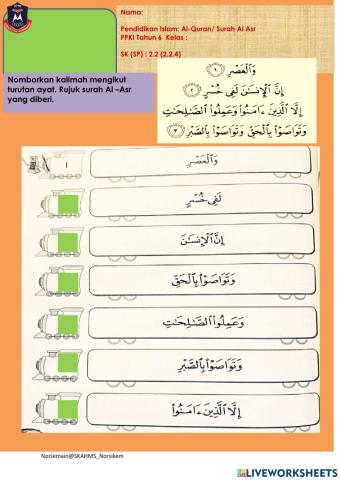 Nama:
Pendidikan Islam: Al-Quran/ Surah Al Asr
PPKI Tahun 6 Kelas :
SK (SP) : 2.2 (2.2.4)
Nomborkan kalimah mengikut
turutan ayat. Rujuk surah Al –Asr
yang diberi.
وَٱلْعَصْرِ ١
إِنَّ ٱلْإِنسَٰنَ لَفِى خُسْرٍ ٢
إِلَّا ٱلَّذِينَ ءَامَنُوا۟ وَعَمِلُوا۟ ٱلصَّٰلِحَٰتِ
وَتَوَاصَوْا۟ بِٱلْحَقِّ وَتَوَاصَوْا۟ بِٱلصَّبْرِ ٣
وَٱلْعَصْرِ ١
لَفِى خُسْرٍ
إِنَّ ٱلْإِنسَٰنَ
وَتَوَاصَوْا۟ بِٱلْحَقِّ
وَعَمِلُوا۟ ٱلصَّٰلِحَٰتِ
وَتَوَاصَوْا۟ بِٱلصَّبْرِ
إِلَّا ٱلَّذِينَ ءَامَنُوا۟
NorJemain@SKAHMS_Norsikem
LIVEWORKSHEETS